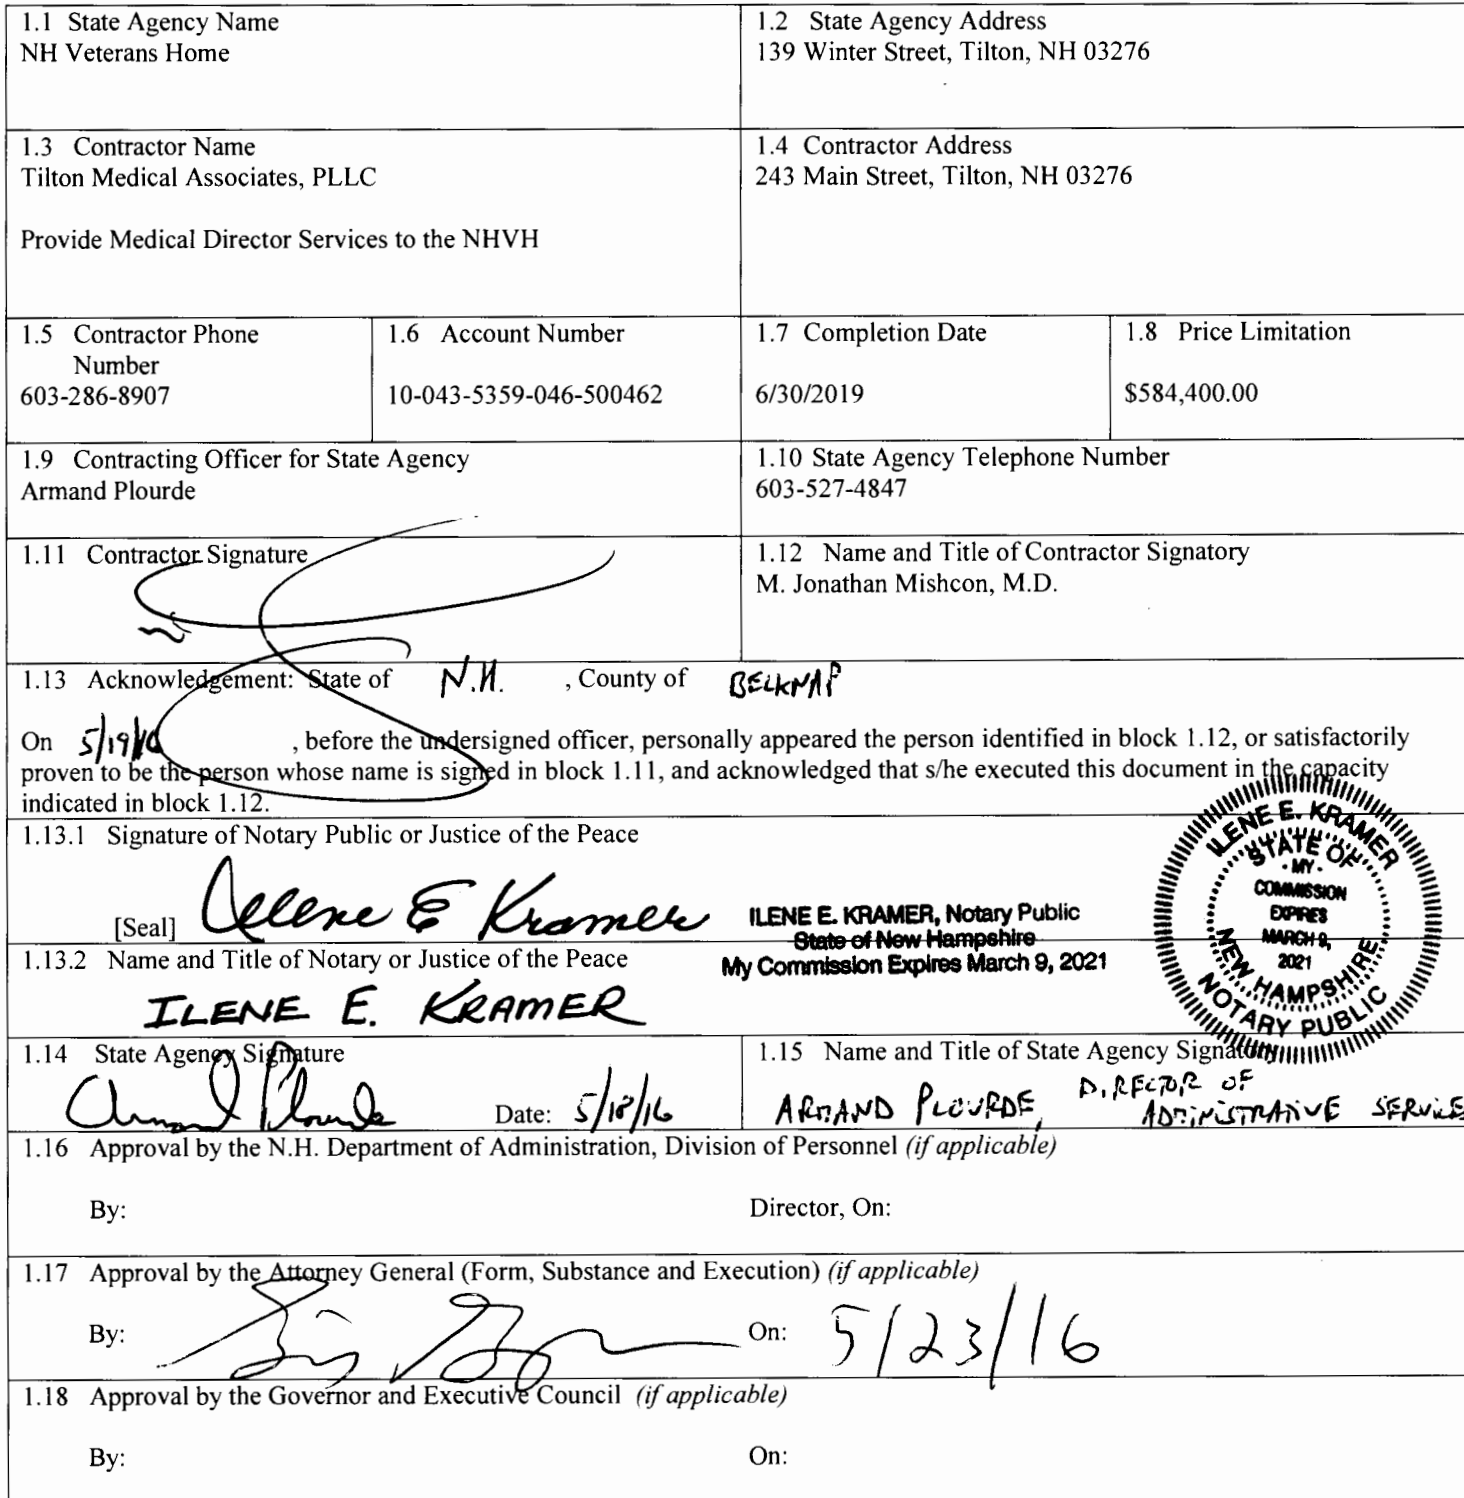 1.1 State Agency Name
NH Veterans Home
1.2 State Agency Address
139 Winter Street, Tilton, NH 03276
1.3 Contractor Name
Tilton Medical Associates, PLLC
Provide Medical Director Services to the NHVH
1.4 Contractor Address
243 Main Street, Tilton, NH 03276
1.5 Contractor Phone
Number
603-286-8907
1.6 Account Number
10-043-5359-046-500462
1.7 Completion Date
6/30/2019
1.8 Price Limitation
$584,400.00
1.9 Contracting Officer for State Agency
Armand Plourde
1.10 State Agency Telephone Number
603-527-4847
1.11 Contractor Signature
1.12 Name and Title of Contractor Signatory
M. Jonathan Mishcon, M.D.
1.13 Acknowledgement: State of N.H. , County of BELKNAP
On 5/19/16 , before the undersigned officer, personally appeared the person identified in block 1.12, or satisfactorily
proven to be the person whose name is signed in block 1.11, and acknowledged that s/he executed this document in the capacity
indicated in block 1.12.
1.13.1 Signature of Notary Public or Justice of the Peace
[Seal] Ilene E Kramer
ILENE E. KRAMER, Notary Public
State of New Hampshire
My Commission Expires March 9, 2021
ILENE E. KRAMER
STATE OF
- MY -
COMMISSION
EXPIRES
MARCH 9,
2021
NEW HAMPSHIRE
NOTARY PUBLIC
1.13.2 Name and Title of Notary or Justice of the Peace
ILENE E. KRAMER
1.14 State Agency Signature
Armand Plourde Date: 5/18/16
1.15 Name and Title of State Agency Signatory
ARMAND PLOURDE, DIRECTOR OF
ADMINISTRATIVE SERVICES
1.16 Approval by the N.H. Department of Administration, Division of Personnel (if applicable)
By: Director, On:
1.17 Approval by the Attorney General (Form, Substance and Execution) (if applicable)
By: On: 5/23/16
1.18 Approval by the Governor and Executive Council (if applicable)
By: On: